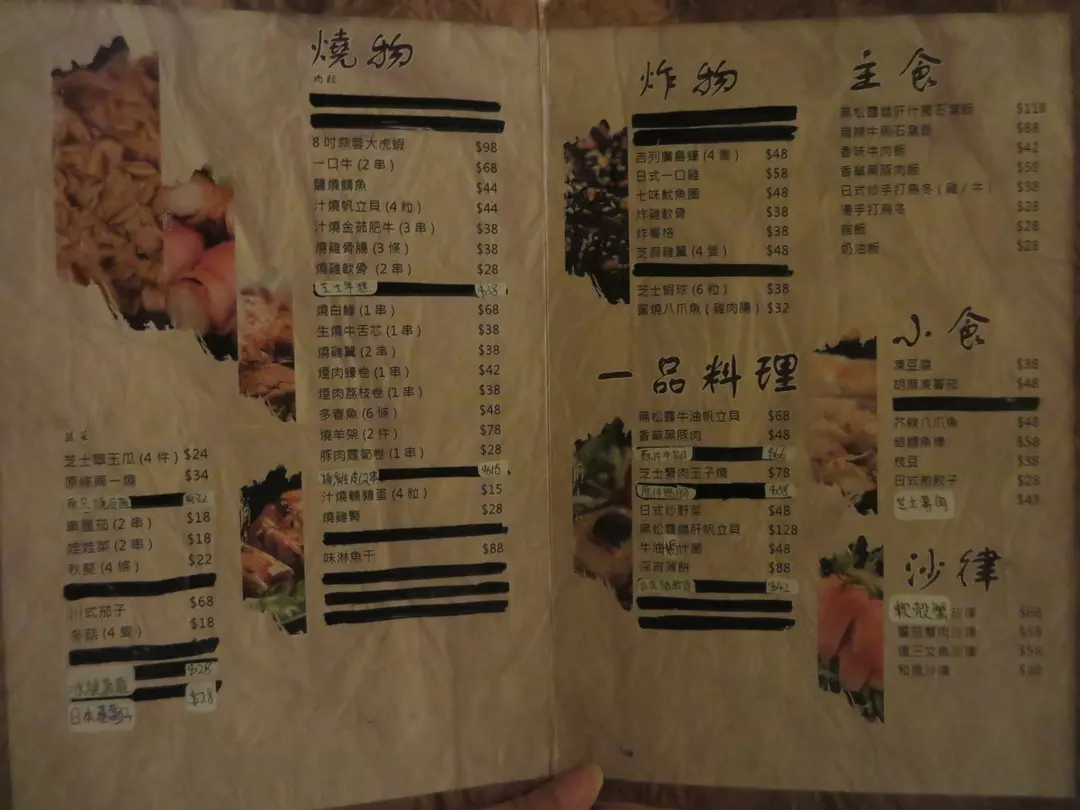 燒物
肉類
8吋蒜蓉大虎蝦 $98
一口牛 (2 串) $68
鹽燒鯖魚 $44
汁燒帆立貝 (4 粒) $44
汁燒金菇肥牛 (3 串) $38
燒雞骨腸 (3 條) $38
燒雞軟骨 (2 串) $28
芝士年糕 $38
燒白鱔 (1 串) $68
生燒牛舌芯 (1 串) $38
燒雞翼 (2 串) $38
煙肉蠔卷 (1 串) $42
煙肉荔枝卷 (1 串) $38
多春魚 (6 條) $48
燒羊架 (2 件) $78
豚肉露筍卷 (1 串) $28
$15
汁燒鵪鶉蛋 (4 粒) $15
燒雞腎 $28
味淋魚干 $88
蔬菜
芝士翠玉瓜 (4 件) $24
原條粟一燒 $34
$32
車厘茄 (2 串) $18
娃娃菜 (2 串) $18
秋葵 (4 條) $22
川式茄子 $68
冬菇 (4 隻) $18
$28
日本 $28
炸物
吉列廣島蠔 (4 隻) $48
日式一口雞 $58
七味魷魚圈 $48
炸雞軟骨 $38
炸薯格 $38
芝麻雞翼 (4 隻) $48
芝士蝦球 (6 粒) $38
蜜燒八爪魚 (雞肉腸) $32
一品料理
黑松露牛油帆立貝 $68
香草黑豚肉 $48
$66
芝士蟹肉玉子燒 $78
$58
日式炒野菜 $48
黑松露鵝肝帆立貝 $128
牛油什菌 $48
深海薄餅 $88
$42
主食
黑松露鵝肝什菌石窩飯 $118
麻辣牛肉石窩飯 $68
香味牛肉飯 $42
香草黑豚肉飯 $58
日式炒手打烏冬 (雞/牛) $38
湯手打烏冬 $28
$28
奶油飯 $28
小食
凍豆腐 $38
胡麻凍蕃茄 $48
芥辣八爪魚 $48
銀鱈魚棒 $58
枝豆 $38
日式煎餃子 $28
芝士薯 $43
沙律
軟殼蟹沙律 $68
蕃茄蟹肉沙律 $58
煙三文魚沙律 $58
和風沙律 $38